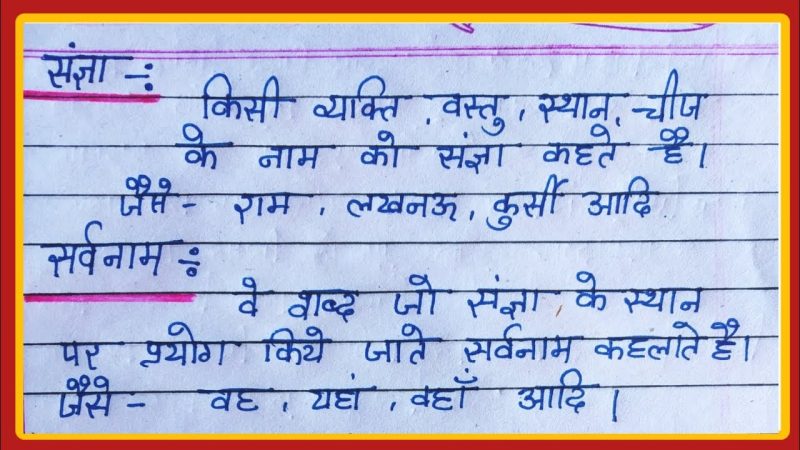 संज्ञा -:
किसी व्यक्ति, वस्तु, स्थान, चीज
के नाम को संज्ञा कहते है।
जैसे - राम, लखनऊ, कुर्सी आदि
सर्वनाम -:
वे शब्द जो संज्ञा के स्थान
पर प्रयोग किये जाते सर्वनाम कहलाते है।
जैसे - वह, यहां, वहाँ आदि।